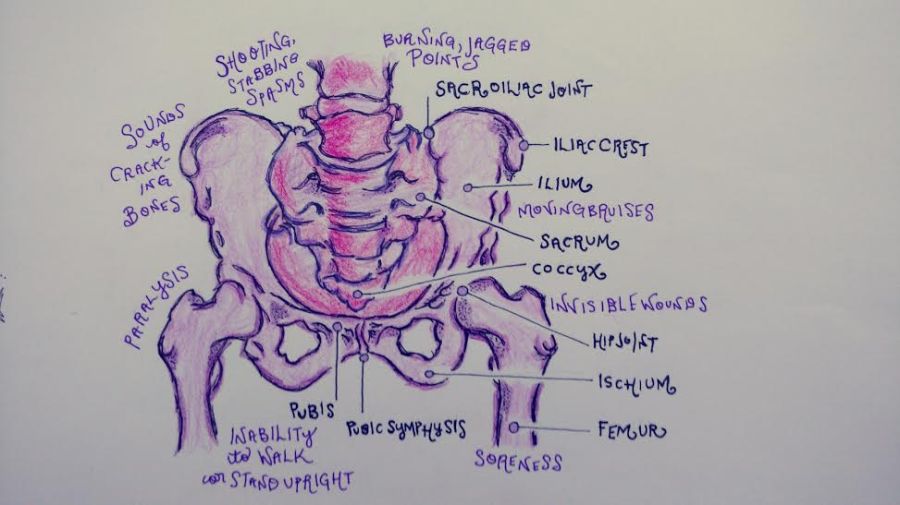 SHOOTING,
STABBING
SPASMS
BURNING, JAGGED
POINTS
SACROILIAC JOINT
SOUNDS
of
CRACK-
ING
BONES
ILIAC CREST
ILIUM
MOVING BRUISES
SACRUM
COCCYX
PARALYSIS
INVISIBLE WOUNDS
HIP JOINT
ISCHIUM
PUBIS
PUBIC SYMPHYSIS
FEMUR
INABILITY
to WALK
or STAND UPRIGHT
SORENESS